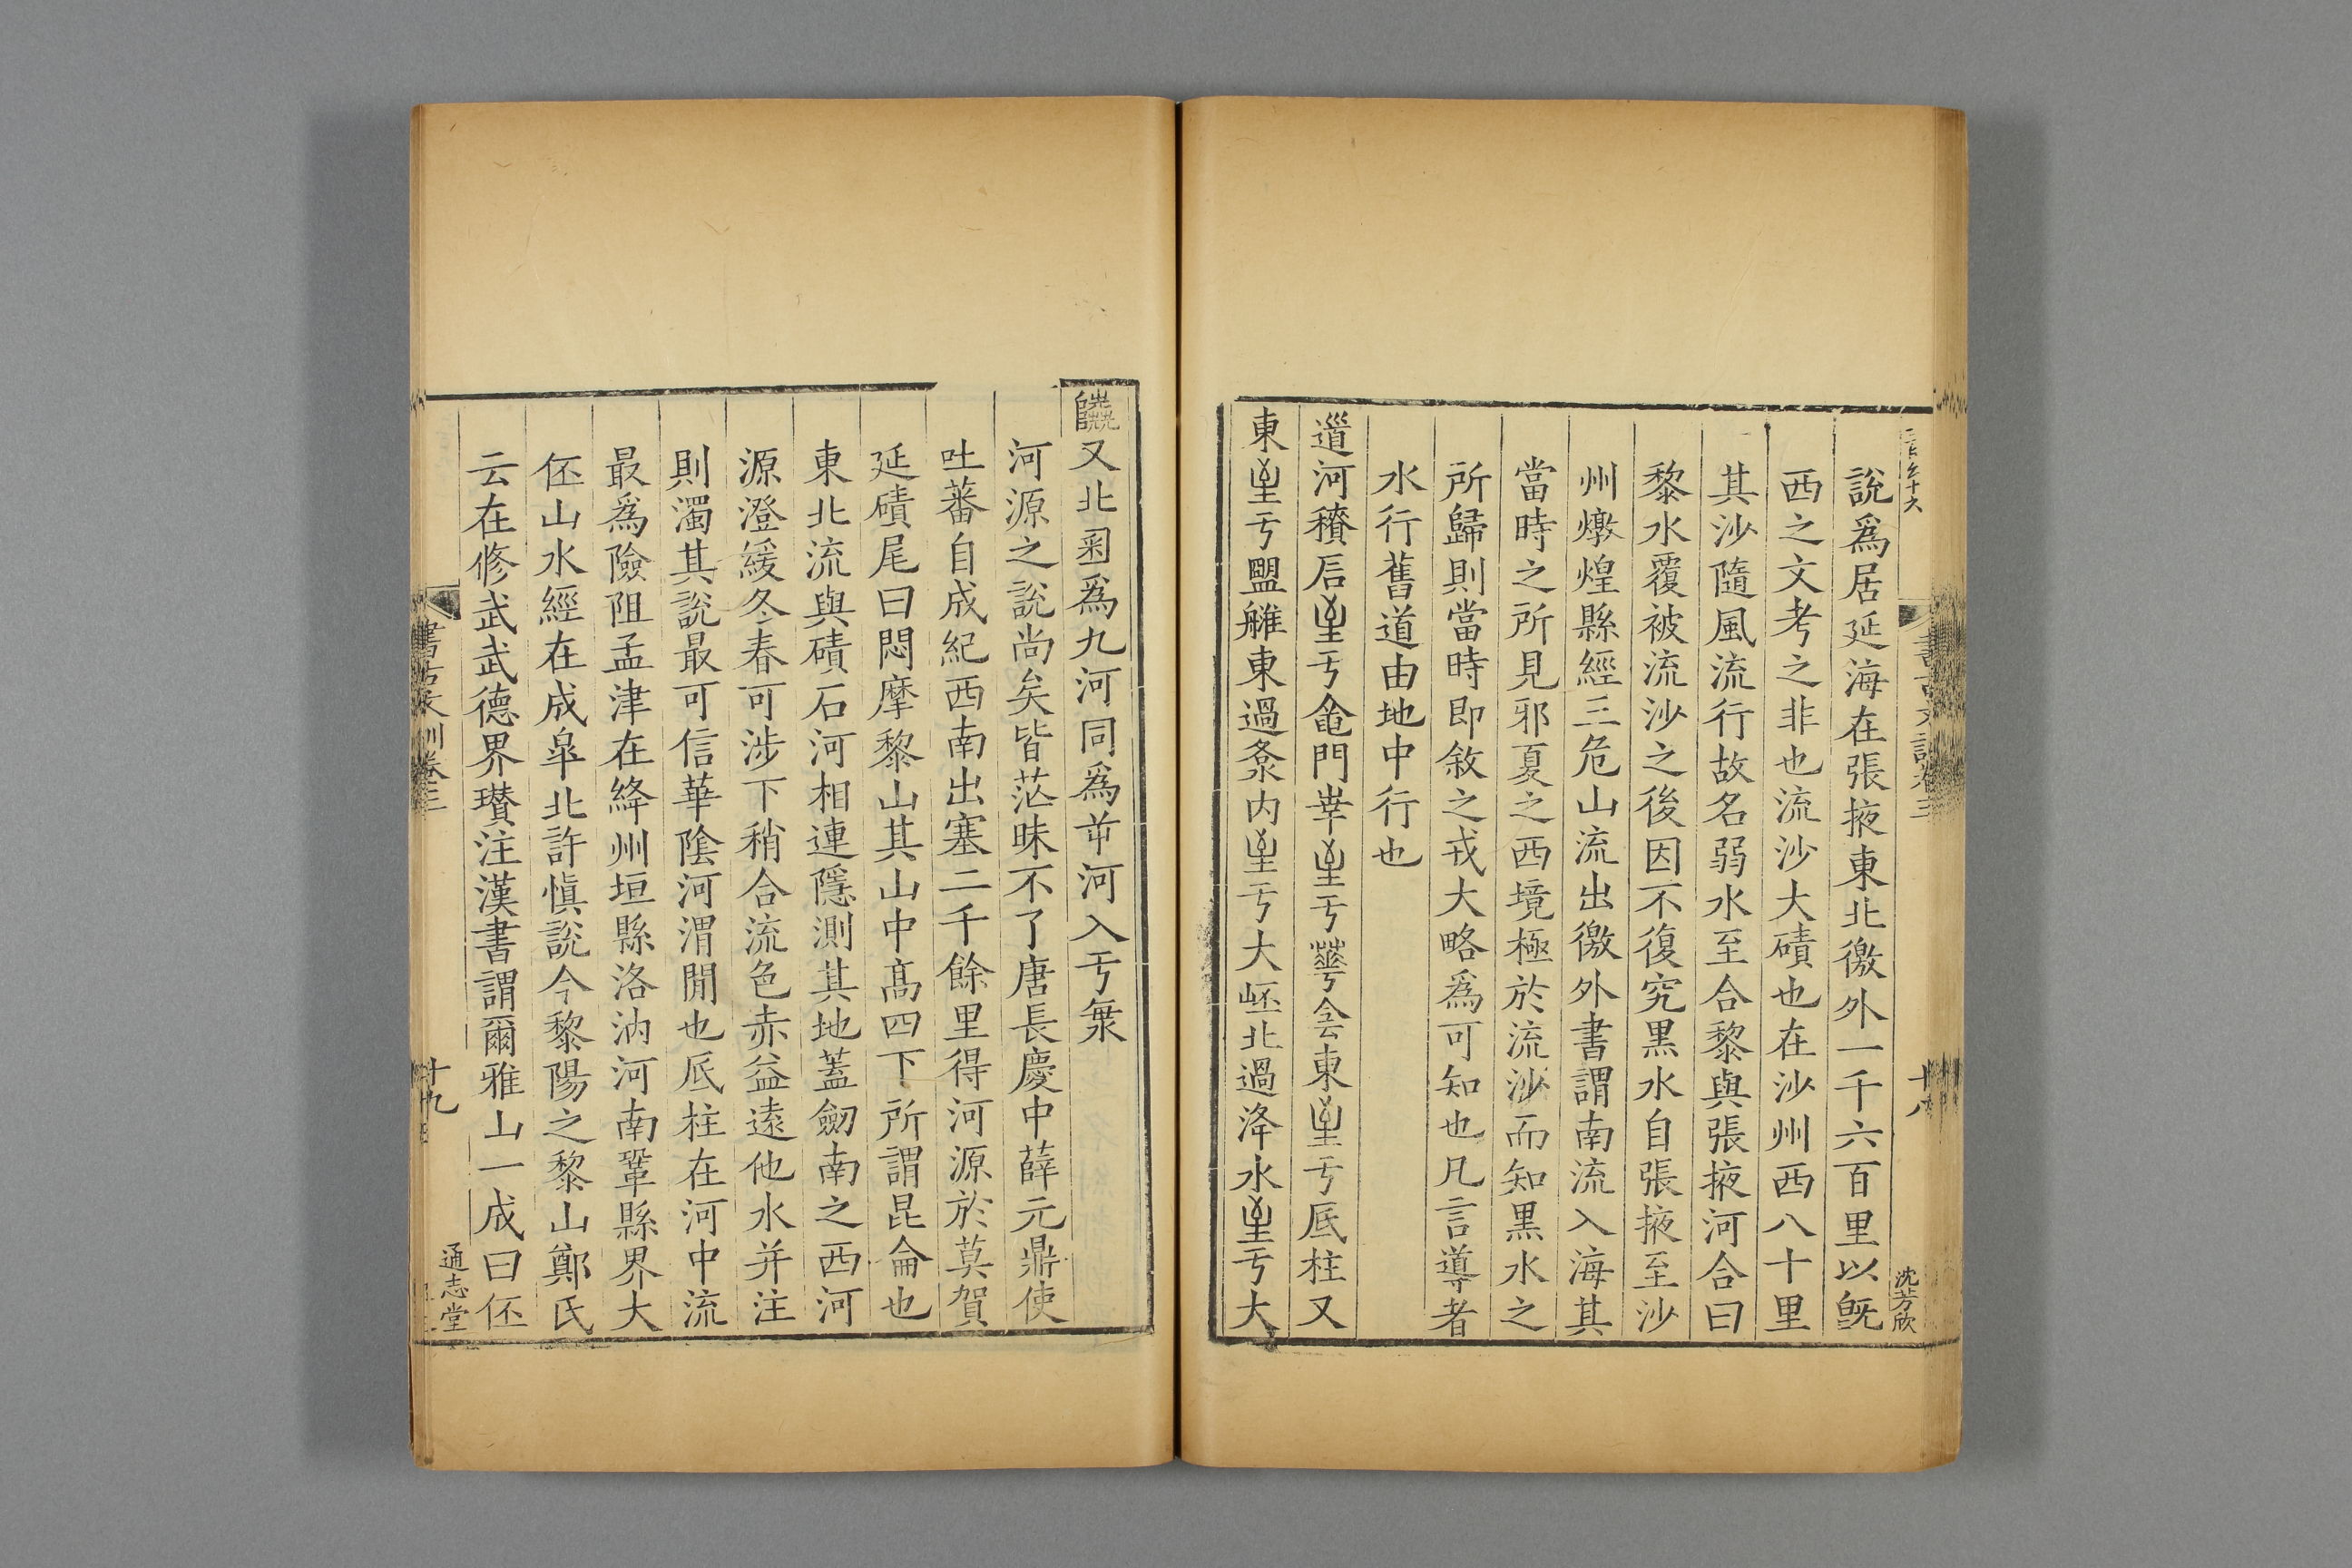 說爲居延海在張掖東北徼外一千六百里以旣
西之文考之非也流沙大磧也在沙州西八十里
其沙隨風流行故名弱水至合黎與張掖河合曰
黎水覆被流沙之後因不復究黑水自張掖至沙
州燉煌縣經三危山流出徼外書謂南流入海其
當時之所見邪夏之西境極於流沙而知黑水之
所歸則當時即敘之戎大略爲可知也凡言導者
水行舊道由地中行也
河 后 亏 門 亏 亏 東 亏 厎柱又
東 亏 東過 内 亏大 北過洚水 亏大
又北 爲九河同爲 河入亏
河源之說尚矣皆茫昧不了唐長慶中薛元鼎使
吐蕃自成紀西南出塞二千餘里得河源於莫賀
延磧尾曰悶摩黎山其山中高四下所謂昆侖也
東北流與磧石河相連隱測其地蓋劒南之西河
源澄緩冬春可涉下稍合流色赤益遠他水并注
則濁其說最可信華陰河渭閒也厎柱在河中流
最爲險阻孟津在絳州垣縣洛汭河南鞏縣界大
伾山水經在成皐北許愼說今黎陽之黎山鄭氏
云在修武武德界瓚注漢書謂爾雅山一成曰伾
書古文訓卷三
十九
通志堂
十八
沈芳欣